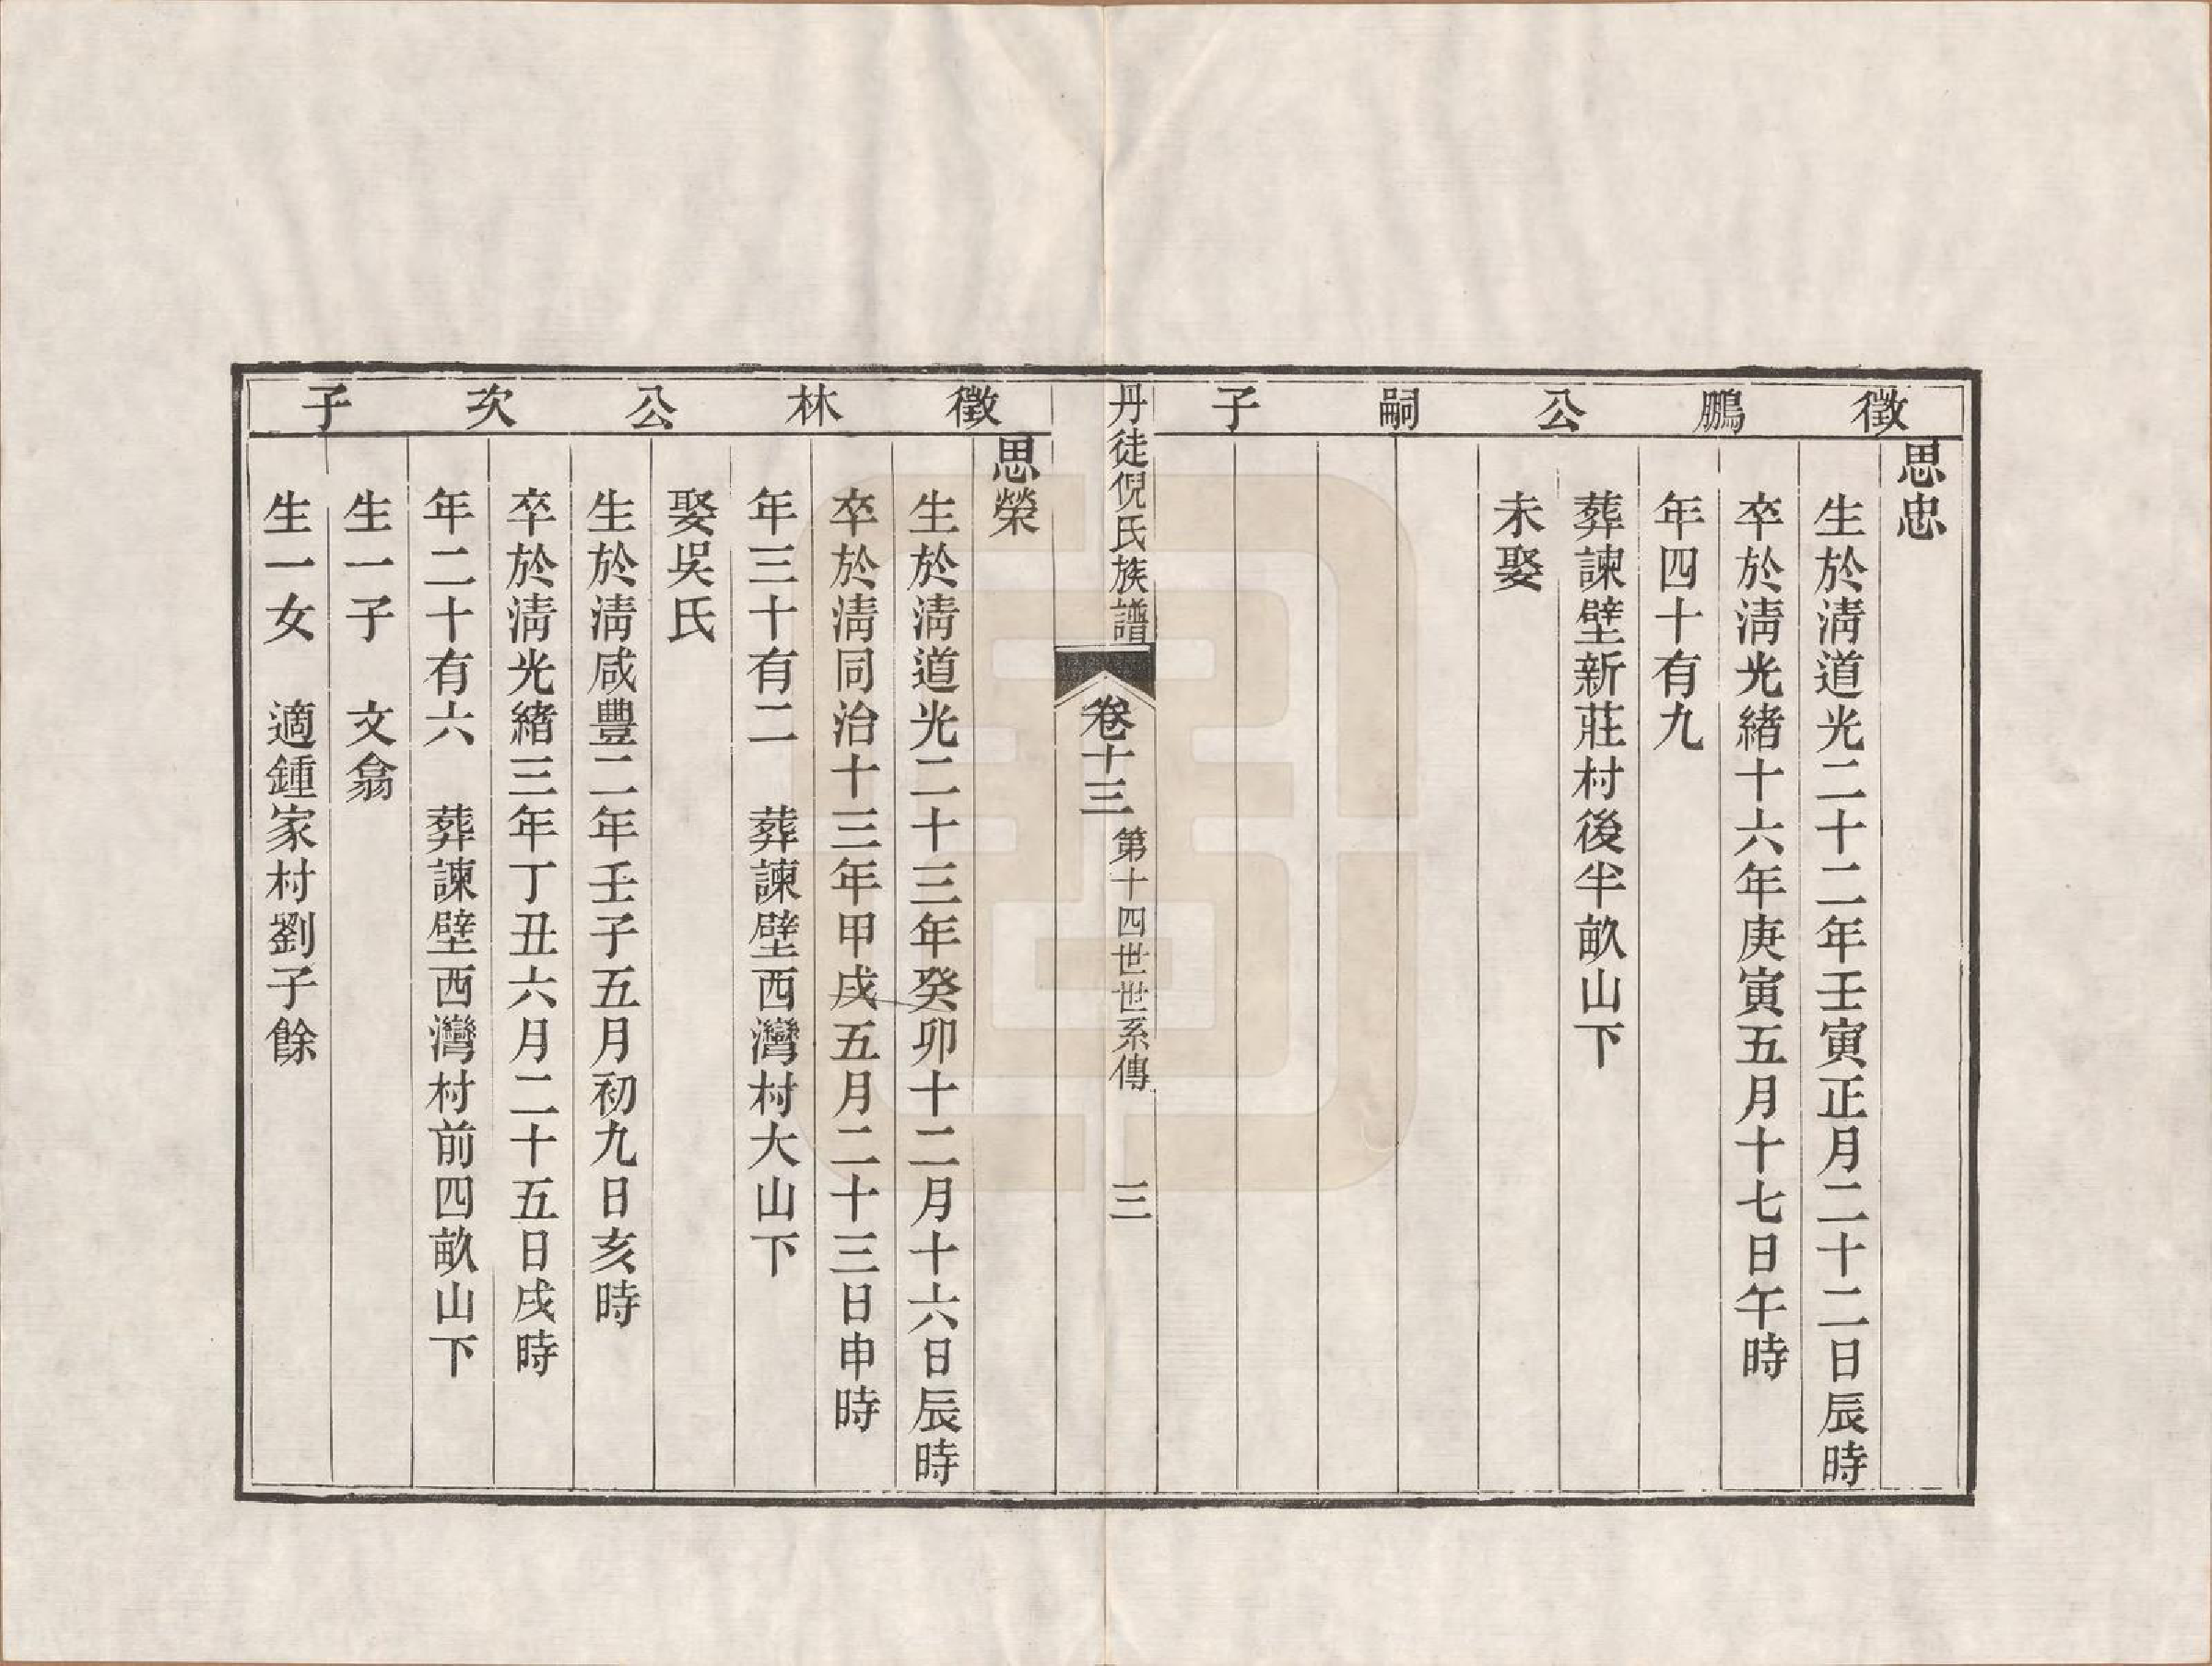 徵鵬公嗣子
思忠
生於清道光二十二年壬寅正月二十二日辰時
卒於清光緒十六年庚寅五月十七日午時
年四十有九
葬諫壁新莊村後半畝山下
未娶
丹徒倪氏族譜 卷十三 第十四世世系傳 三
徵林公次子
思榮
生於清道光二十三年癸卯十二月十六日辰時
卒於清同治十三年甲戌五月二十三日申時
年三十有二 葬諫壁西灣村大山下
娶吳氏
生於清咸豐二年壬子五月初九日亥時
卒於清光緒三年丁丑六月二十五日戌時
年二十有六 葬諫壁西灣村前四畝山下
生一子 文翕
生一女 適鍾家村劉子餘